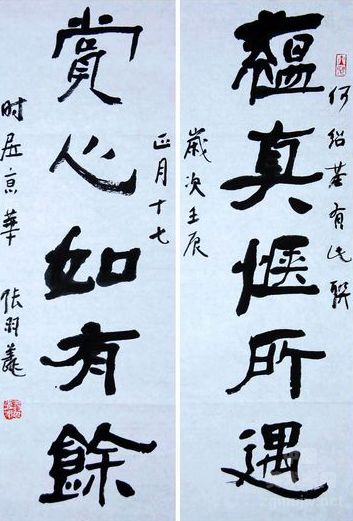 蘊真愜所遇
賞心如有餘
何绍基有此联
歲次壬辰
正月十七
时居京華 张羽